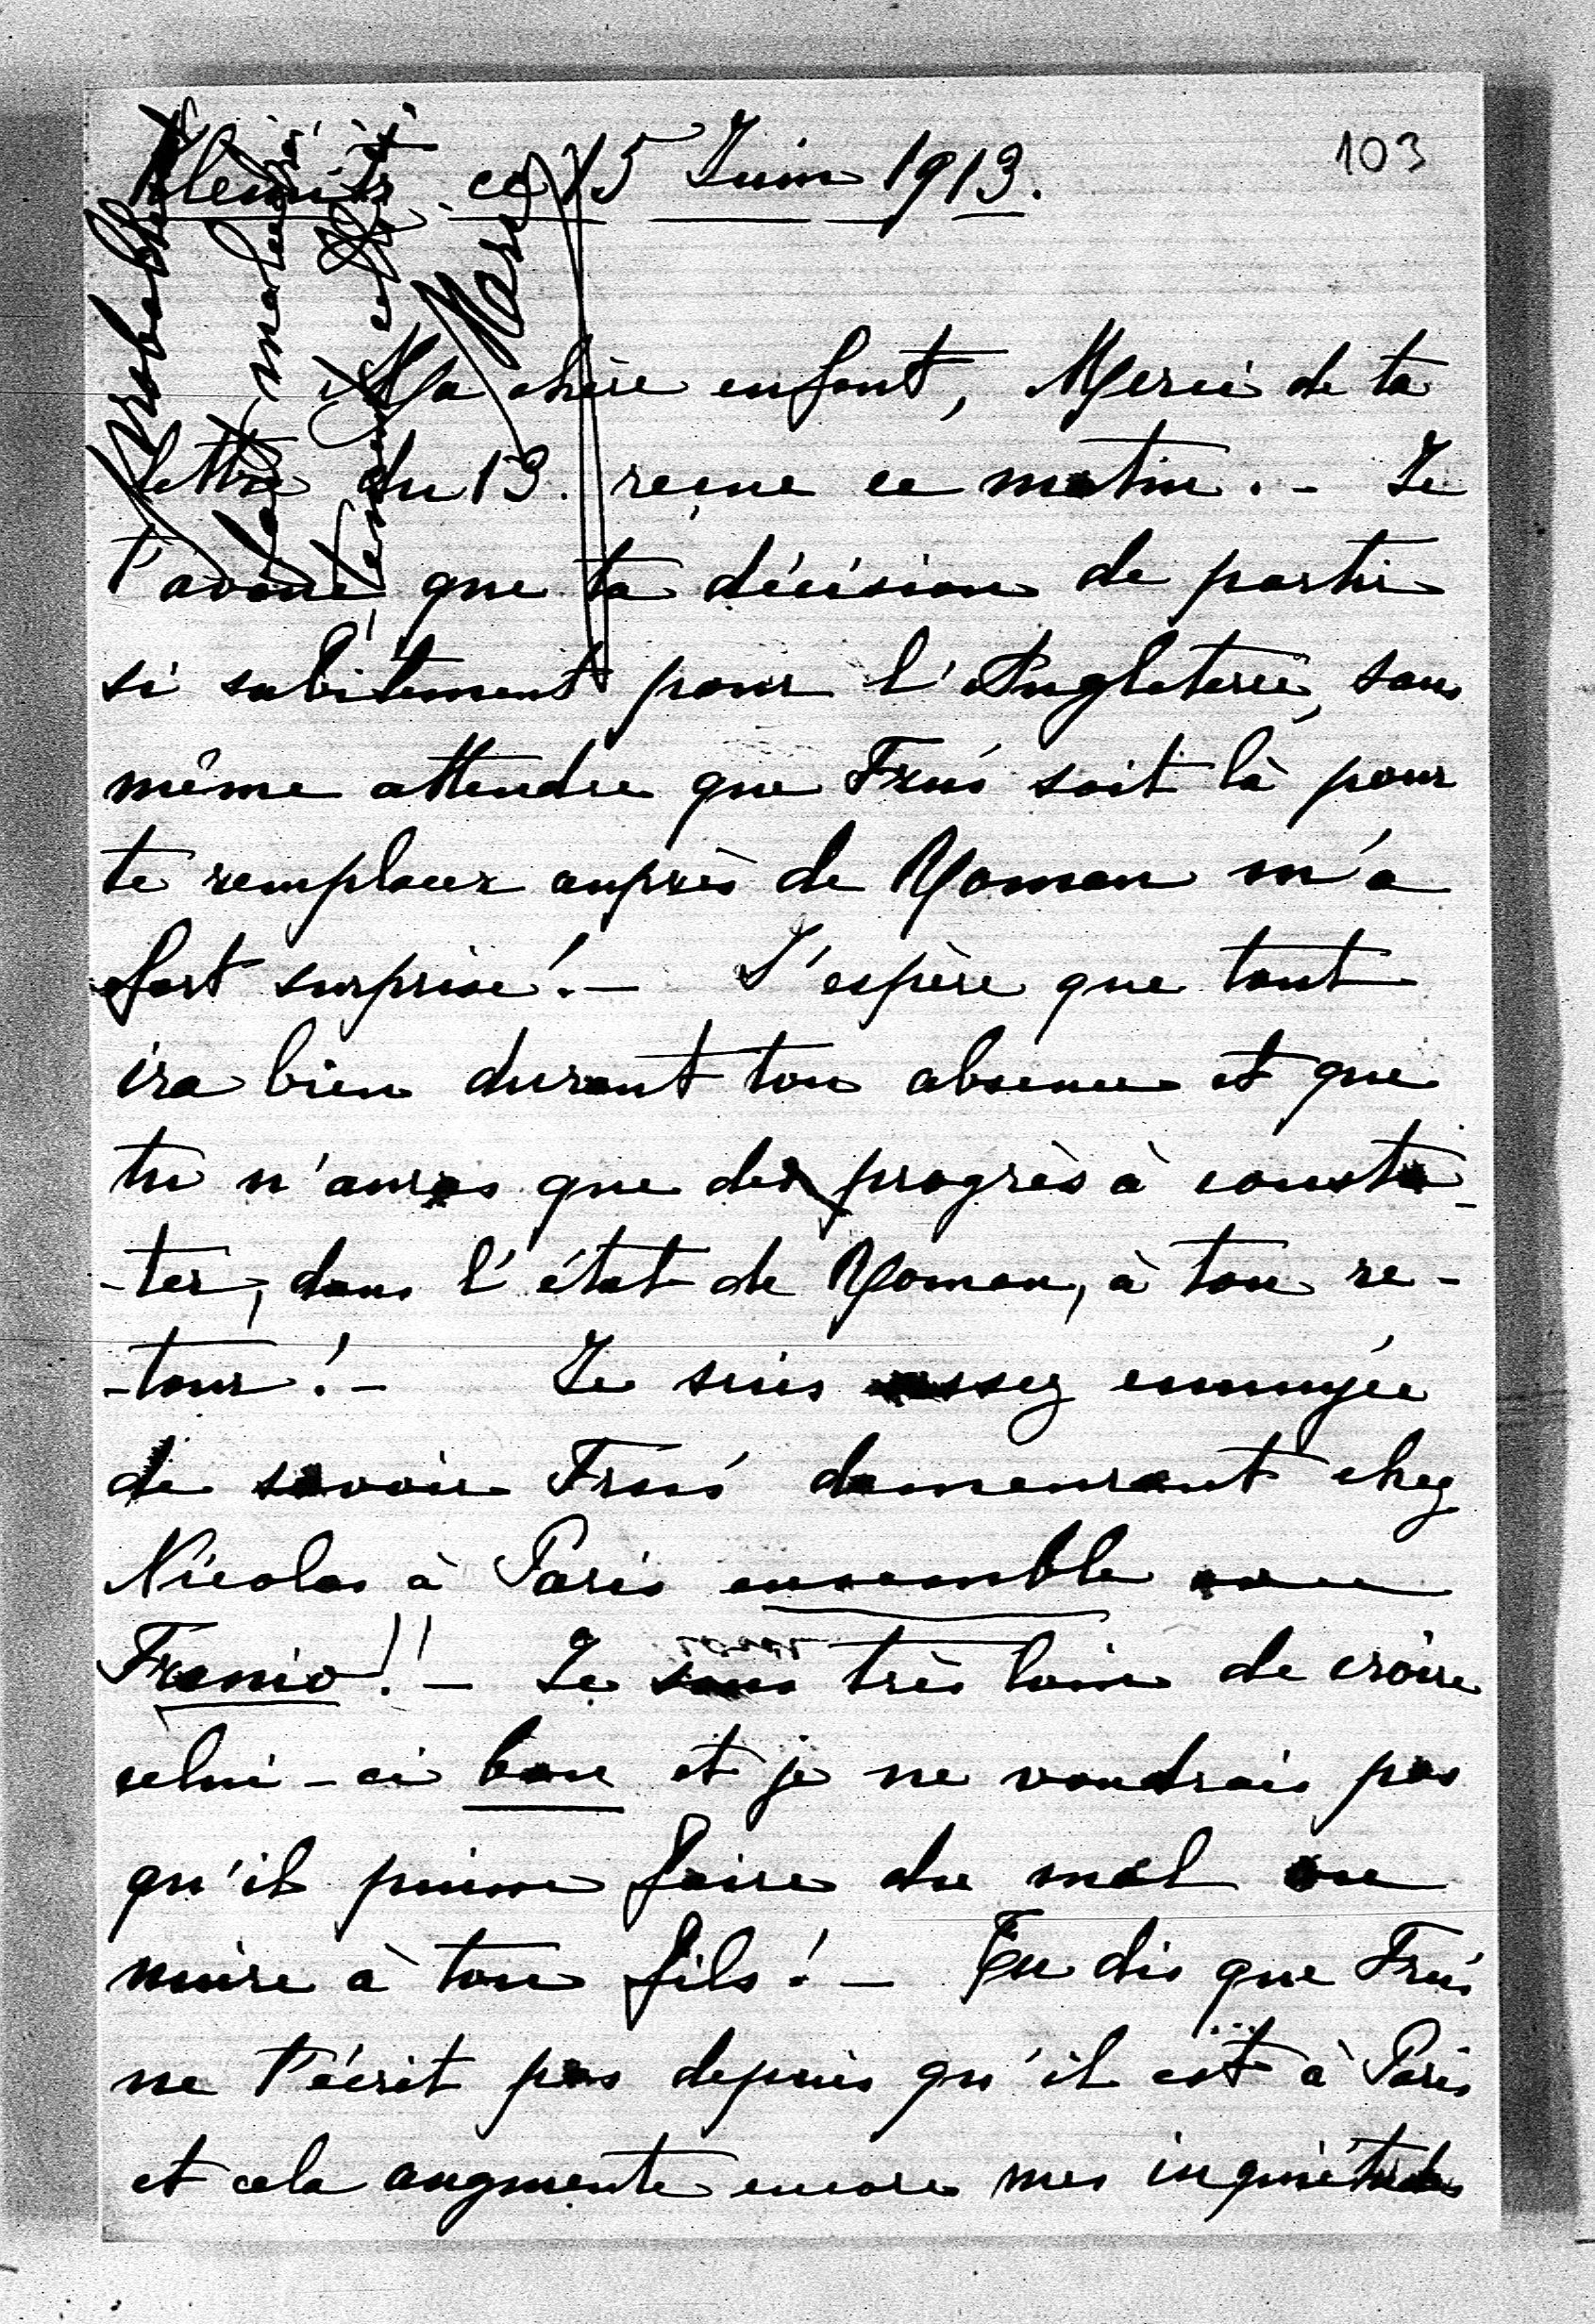 103
ce 15 Juin 1913.
Ma chère enfant, Merci de ta
lettre du 13. reçue ce matin. - Je
t'avoue que ta décision de partir
si subitement pour l'Angleterre, sans
même attendre que Frus soit là pour
te remplacer auprès de Maman m'a
fort surprise! - J'espère que tout
ira bien durant ton absence et que
tu n'auras que des progrès à consta-
-ter, dans l'état de Maman, à ton re-
-tour! - Je suis assez ennuyée
de savoir Frus demeurant chez
Nicolas à Paris ensemble avec
Franio!! - Je suis très loin de croire
celui-ci bon et je ne voudrais pas
qu'il puisse faire du mal ou
nuire à ton fils! - Tu dis que Frus
ne t'écrit pas depuis qu'il est à Paris
et cela augmente encore mes inquiétudes